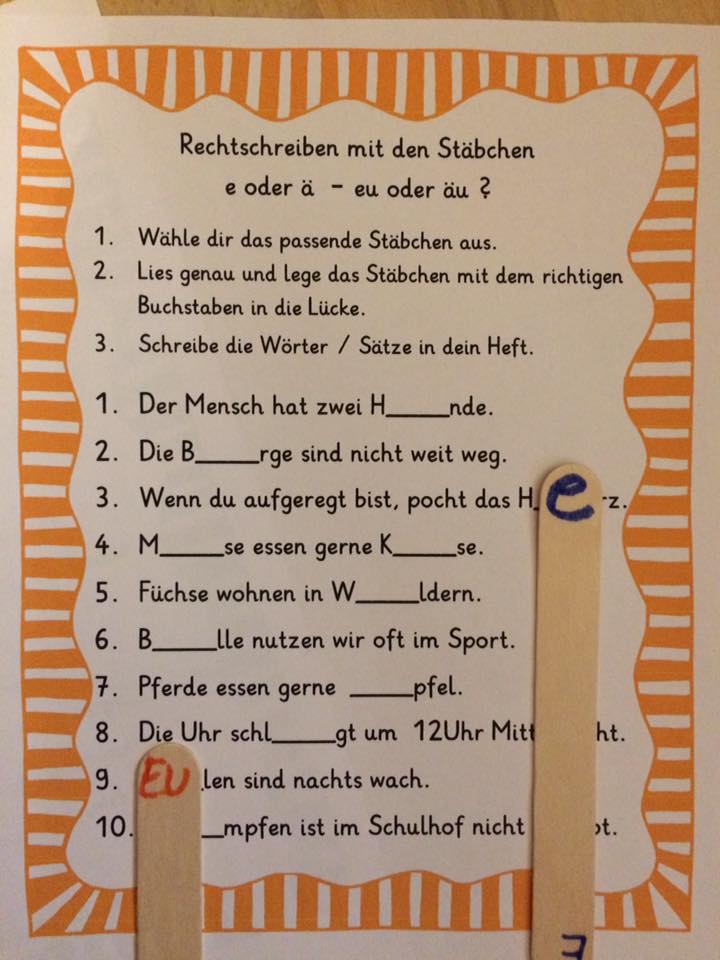 Rechtschreiben mit den Stäbchen
e oder ä - eu oder äu ?
1. Wähle dir das passende Stäbchen aus.
2. Lies genau und lege das Stäbchen mit dem richtigen
Buchstaben in die Lücke.
3. Schreibe die Wörter / Sätze in dein Heft.
1. Der Mensch hat zwei H_____nde.
2. Die B_____rge sind nicht weit weg.
3. Wenn du aufgeregt bist, pocht das H_erz.
4. M_____se essen gerne K_____se.
5. Füchse wohnen in W_____ldern.
6. B_____lle nutzen wir oft im Sport.
7. Pferde essen gerne _____pfel.
8. Die Uhr schl_____gt um 12Uhr Mitt ht.
9. EU len sind nachts wach.
10. __mpfen ist im Schulhof nicht t.